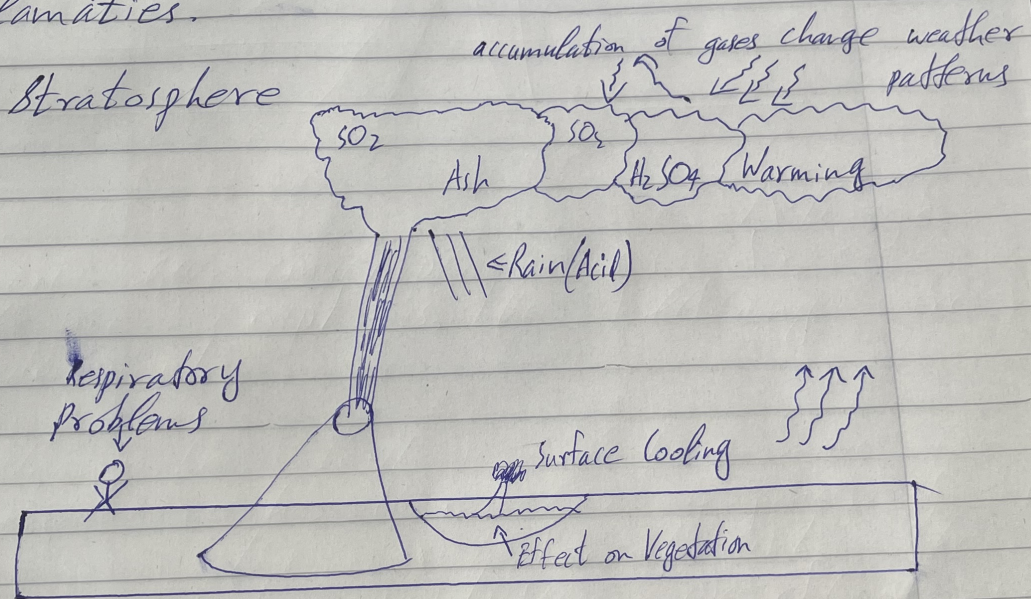 lamaties.
accumulation of gases change weather
patterns
Stratosphere
SO2
Ash
SO2
H2SO4
Warming
Rain(Acid)
Respiratory
Problems
Surface Cooling
Effect on Vegetation